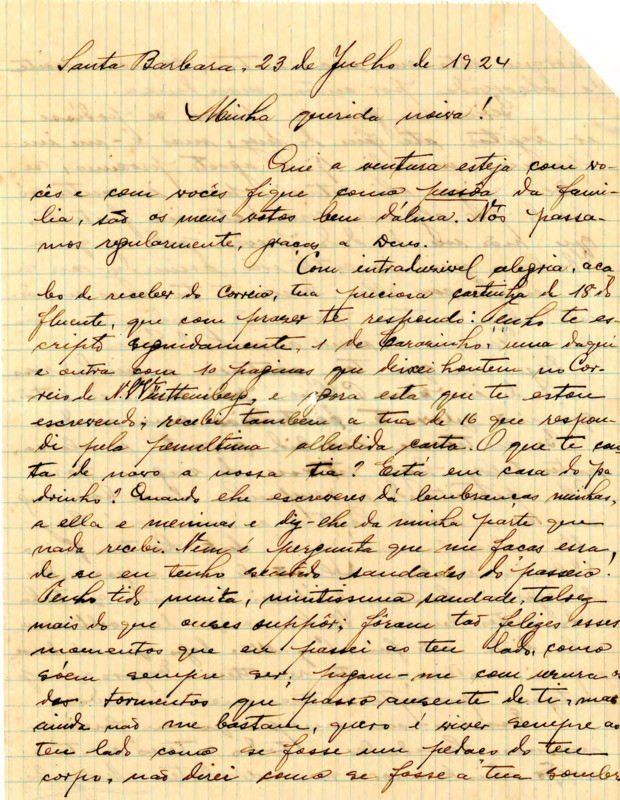 Santa Barbara, 23 de Julho de 1924
Minha querida noiva!
Que a ventura esteja com vo-
cês e com vocês fique como pessôa da fami-
lia, são os meus votos bem d'alma. Nós passa-
mos regularmente, graças a Deus.
Com intraduzivel alegria, aca-
bo de receber do Correio, tua preciosa cartinha de 18 do
fluente, que com prazer te respondo: Tenho te es-
cripto seguidamente, 1 de Carazinho; uma daqui
e outra com 10 paginas que deixei hontem no Cor-
reio de N. Württemberg, e esta que te estou
escrevendo; recebi tambem a tua de 16 que respon-
di pela penultima alludida carta. O que te con-
ta de novo a nossa tia? Está em casa do pa-
drinho? Quando lhe escreveres dá lembranças minhas,
a ella e meninas e diz-lhe da minha parte que
nada recebi. Nem é pergunta que me faças essa,
de se eu tenho sentido saudades do passeio!
Tenho tido muita, muitissima saudade, talvez
mais do que ouses suppôr; fôram tão felizes esses
momentos que eu passei ao teu lado, como
sóem sempre ser; pagam-me com usura
dos tormentos que passo ausente de ti, mas
ainda não me bastam, quero é viver sempre ao
teu lado como se fosse um pedaço do teu
corpo, não direi como se fosse a tua sombra